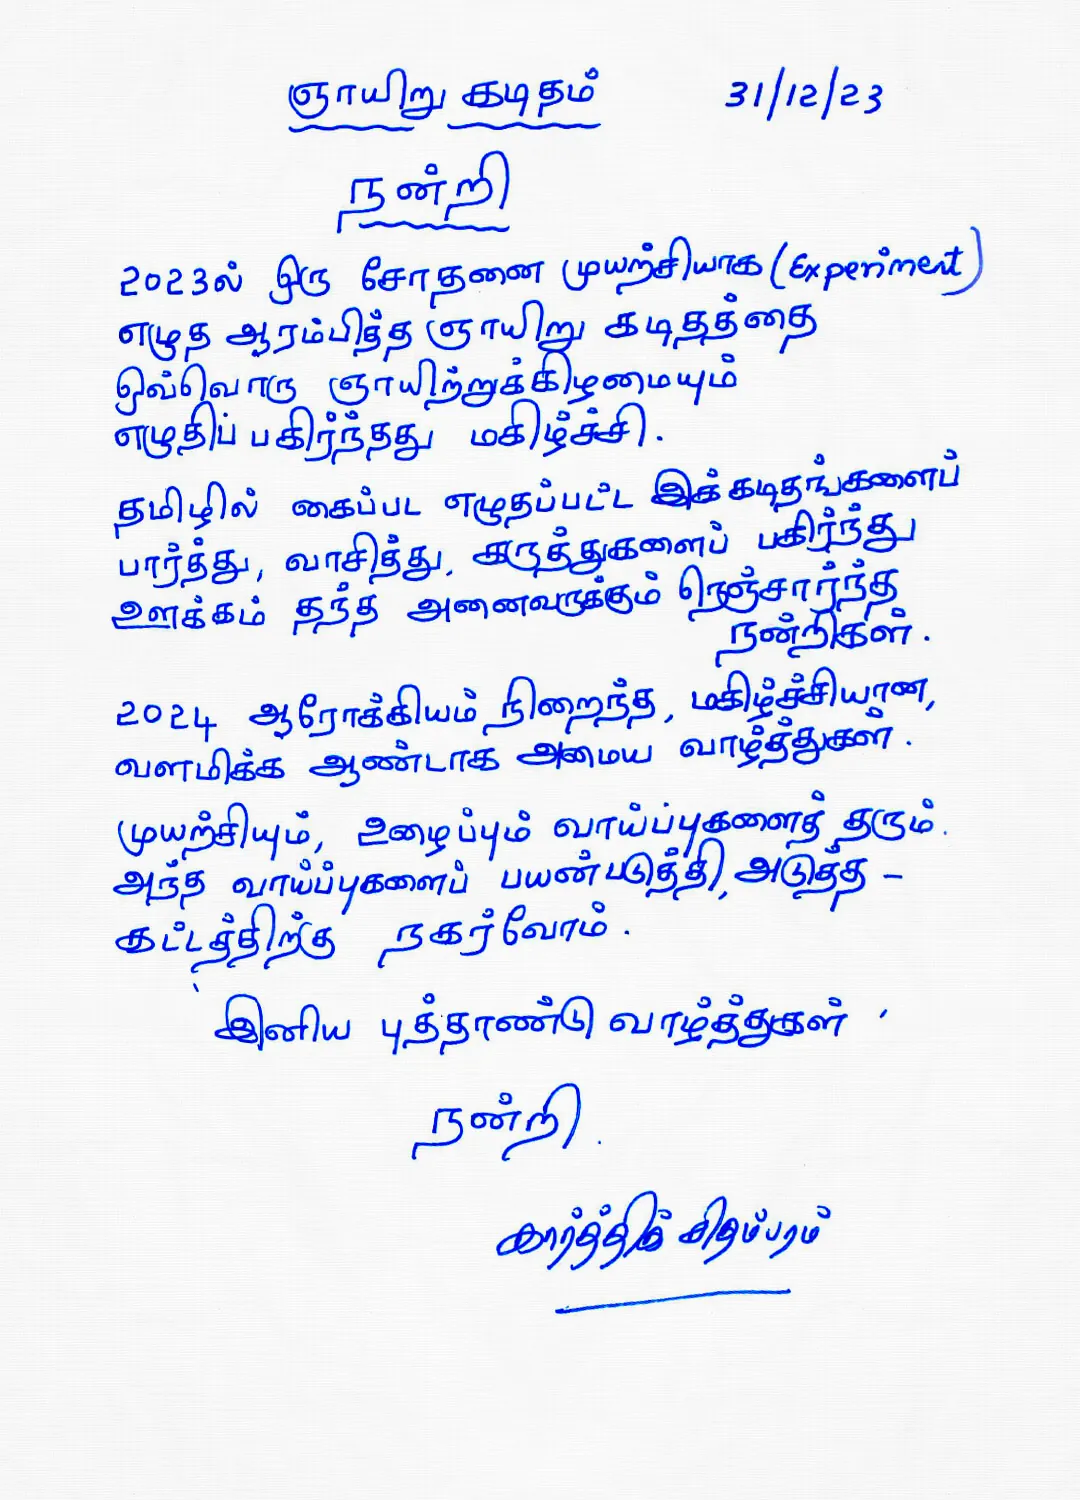 ஞாயிறு கடிதம் 31/12/23
நன்றி
2023ல் ஒரு சோதனை முயற்சியாக (Experiment)
எழுத ஆரம்பித்த ஞாயிறு கடிதத்தை
ஒவ்வொரு ஞாயிற்றுக்கிழமையும்
எழுதிப் பகிர்ந்தது மகிழ்ச்சி.
தமிழில் கைப்பட எழுதப்பட்ட இக்கடிதங்களைப்
பார்த்து, வாசித்து, கருத்துகளைப் பகிர்ந்து
ஊக்கம் தந்த அனைவருக்கும் நெஞ்சார்ந்த
நன்றிகள்.
2024 ஆரோக்கியம் நிறைந்த, மகிழ்ச்சியான,
வளமிக்க ஆண்டாக அமைய வாழ்த்துகள்.
முயற்சியும், உழைப்பும் வாய்ப்புகளைத் தரும்.
அந்த வாய்ப்புகளைப் பயன்படுத்தி, அடுத்த -
கட்டத்திற்கு நகர்வோம்.
இனிய புத்தாண்டு வாழ்த்துகள்
நன்றி.
கார்த்திக் சிதம்பரம்